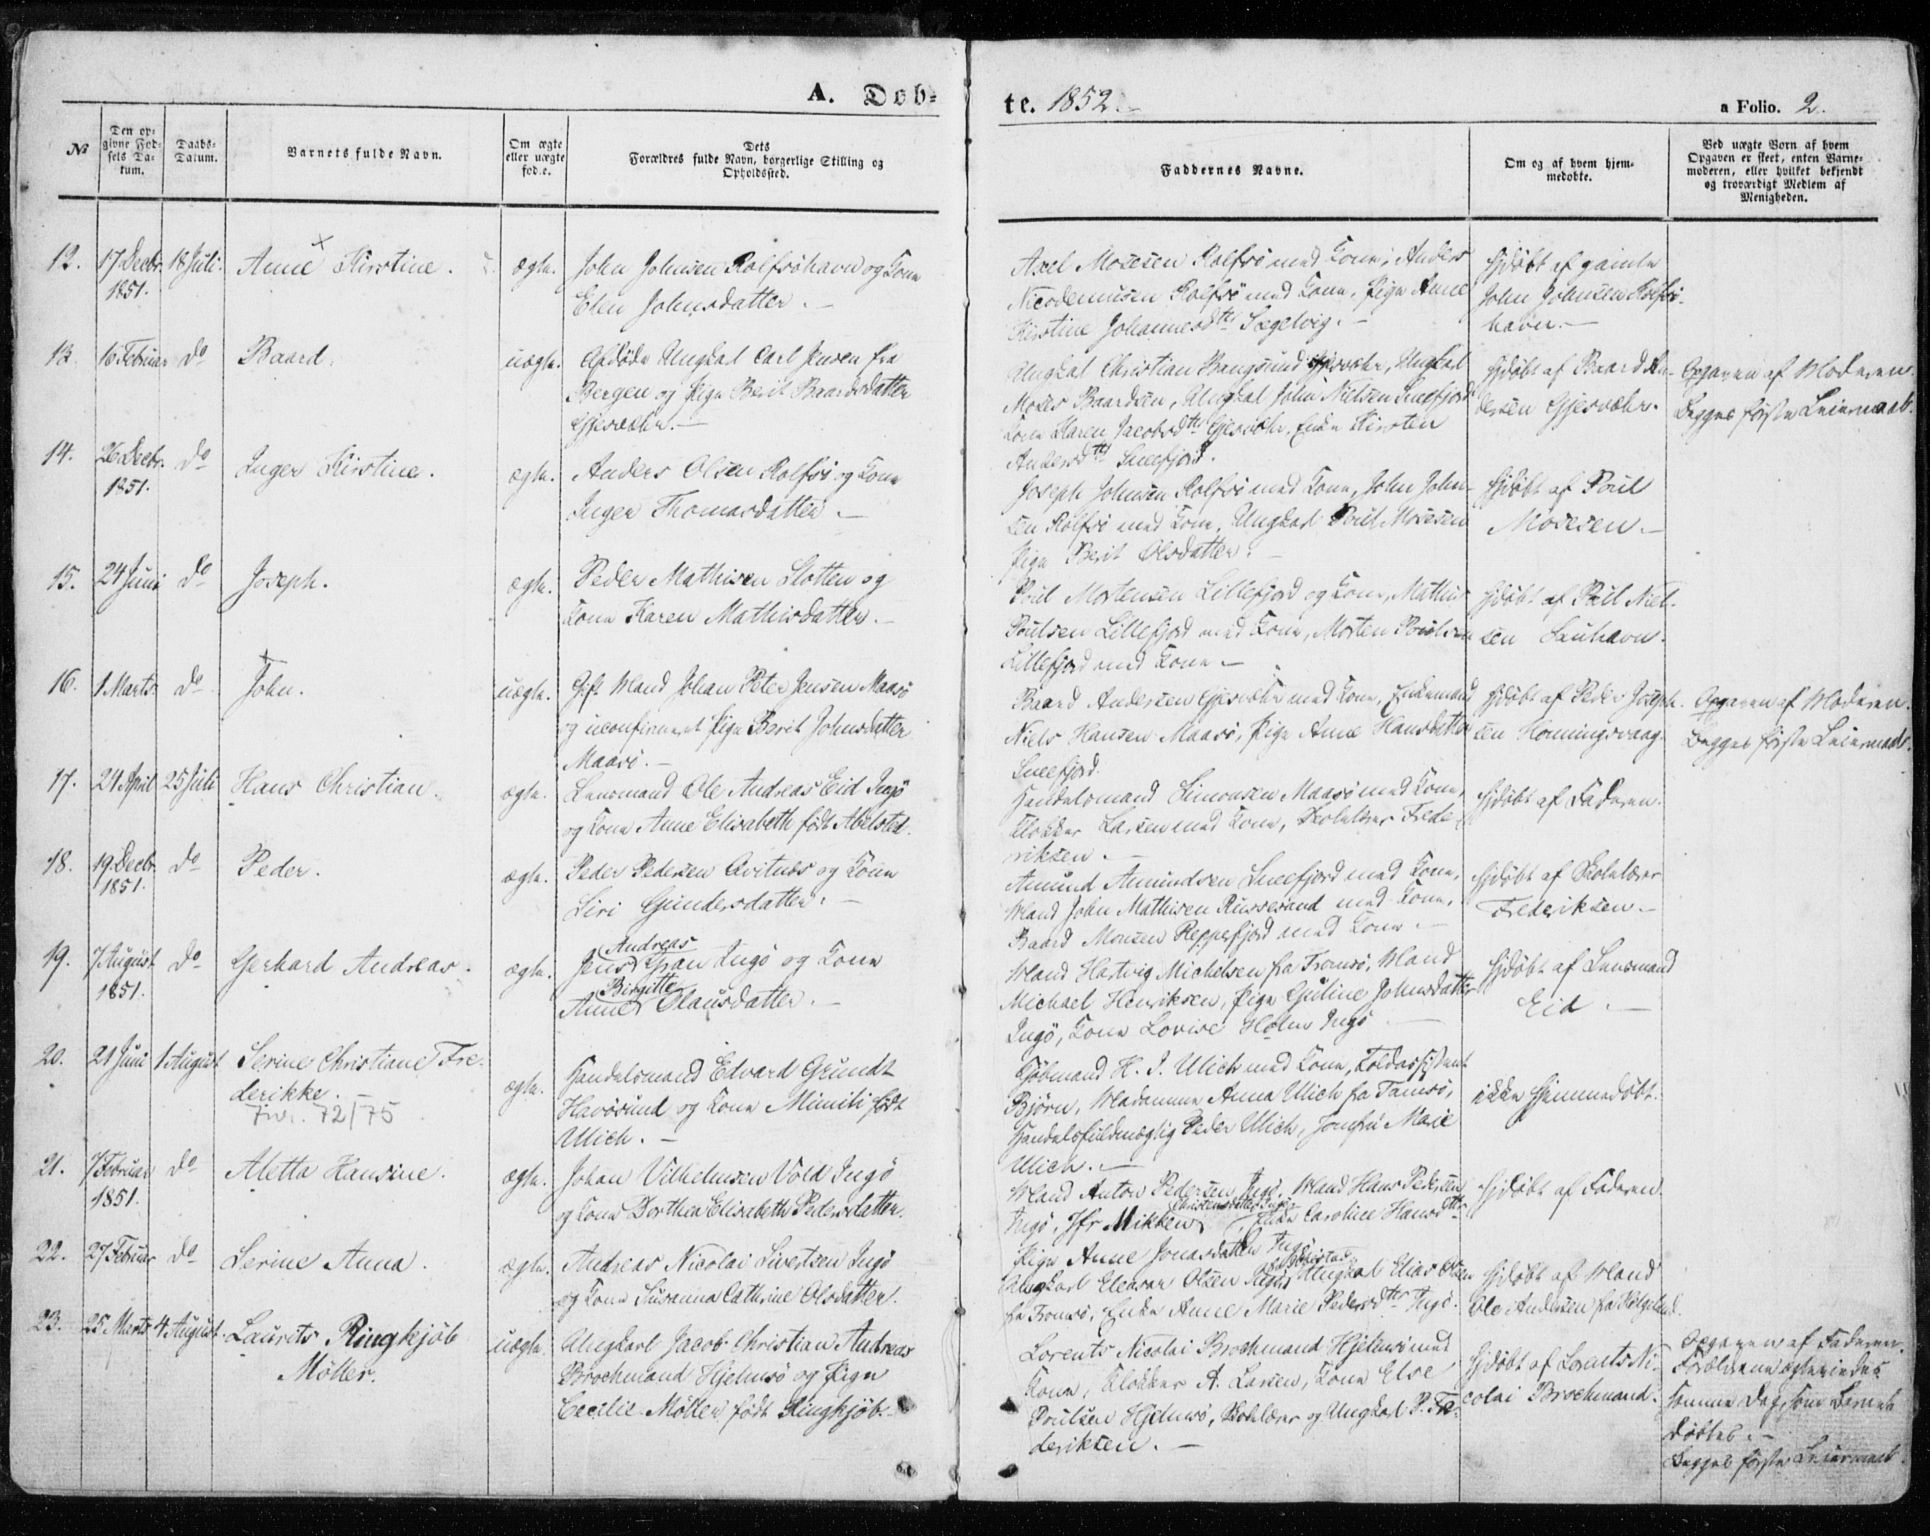 A. Døb-
te. 1852.
a Folio. 2.
№
Den op-
givne Fød-
sels Da-
tum.
Daabs-
Datum.
Barnets fulde Navn.
Om ægte
eller uægte
fød.e.
Dets
Forældres fulde Navn, borgerlige Stilling og
Opholdssted.
Faddernes Navne.
Om og af hvem hjem-
medøbte.
Ved uægte Børn af hvem
Opgaven er skeet, enten Barne-
moderen, eller hvilket bekjendt
og troværdigt Medlem af
Menigheden.
12. 17 Decbr. 1851. 18 Juli. Anne Kirstine. ægte.
John Johnsen Rolfsøhavn og Kone
Elen Johnsdatter.
Axel Mosesen Rolfsø med Kone, Anders
Nicodemusen Rolfsø med Kone, Pige Anne
Kirstine Johannesdtr
Hjdøbt af gamle
John Johnsen Rolfsø-
havn.
13. 16 Februar do Baard. uægte.
Afdøde Ungkal Carl Jensen fra
Bergen og Pige Berit Baardsdatter
Gjesvær.
Ungkal Christian Bangsund Gjesvær, Ungkal
Moses Baardsen, Ungkal John Nielsen Sneefjord
Kone Karen Jacobsdtr Gjesvær, Enke Kirsten
Andersdtr Sneefjord.
Hjdøbt af Baard An-
dersen Gjesvær.
Opgaven af Moderen.
Begges første Leiermaal.
14. 26 Decbr. 1851. do Inger Kirstine. ægte.
Anders Olsen Rolfsø og Kone
Inger Thomasdatter.
Joseph Johnsen Rolfsø med Kone, John John-
sen Rolfsø med Kone, Ungkarl Poul Mosesen
Pige Berit Olsdatter.
Hjdøbt af Poul
Mosesen.
15. 24 Juni do Joseph. ægte.
Peder Mathisen Slotten og
Kone Karen Mathisdatter.
Poul Mortensen Lillefjord og Kone, Mathis
Poulsen Lillefjord med Kone, Morten Poulsen
Lillefjord med Kone
Hjdøbt af Poul Niel-
sen
16. 1 Marts do John. uægte.
Gift Mand Johan Peter Jensen Maasø
og uconfirmeret Pige Berit Johnsdatter
Maasø.
Baard Andersen Gjesvær med Kone, Enkemand
Niels Hansen Maasø, Pige Anne Hansdatter
Sneefjord.
Hjdøbt af Peder Joseph-
sen Honningsvaag.
Opgaven af Moderen.
Begges første Leiermaal.
17. 24 April 25 Juli Hans Christian. ægte.
Lensmand Ole Andreas Eid Ingø
og Kone Anne Elisabeth født Abelsted.
Handelsmand Simonsen Maasø med Kone,
Klokker Larsen med Kone, Skolelærer Frede-
riksen.
Hjdøbt af Faderen.
18. 19 Decbr. 1851. do Peder. ægte.
Peder Pedersen Qvitnes og Kone
Siri Gundersdatter.
Amund Amundsen Sneefjord med Kone,
Mand John Mathisen Russesund med Kone,
Baard Monsen Reppefjord med Kone.
Hjdøbt af Skolelærer
Frederiksen
19. 7 August 1851. do Gerhard Andreas. ægte.
Jens Andreas Gran Ingø og Kone
Anne Birgitte Olausdatter.
Mand Hartvig Michelsen fra Tromsø, Mand
Michael Henriksen, Pige Guline Johnsdatter
Ingø, Kone Lovise Holm Ingø
Hjdøbt af Lensmand
Eid
20. 21 Juni 1 August Serine Christiane Fre-
derikke.
Fwr. 72/75
ægte.
Handelsmand Edvard Grundt
Havøsund og Kone Mimili født
Ulich.
Kjøbmand H. J. Ulich med Kone, Toldassistent
Bjørn, Madamme Anna Ulich fra Tamsø,
Handelsfuldmægtig Peder Ulich, Jomfru Marie
Ulich.
ikke Hjemmedøbt.
21. 7 Februar 1851. do Aletta Hansine. ægte.
Johan Vilhelmsen Vold Ingø
og Kone Dorthea Elisabeth Pedersdatter.
Mand Anton Pedersen Ingø, Mand Hans Pedersen
Ingø, Jfr Mikken Christensdatter Ingø, Enke Caroline Hansdtr
Pige Anne Jonasdatter Ingø
Hjdøbt af Faderen.
22. 27 Februar do Serine Anna. ægte.
Andreas Nicolai Sivertsen Ingø
og Kone Susanna Cathrine Olsdatter.
Ungkarl Eleasar Olsen Ingø, Ungkal Elias Olsen
fra Tromsø, Enke Anne Marie Pedersdtr Ingø.
Hjdøbt af Mand
Ole Andersen fra Helgeland.
23. 25 Marts 4 August. Laurits Ringkjøb
Møller.
uægte.
Ungkarl Jacob Christian Andreas
Brochmand Hjelmsø og Pige
Cecilie Møller født Ringkjøb.
Lorents Nicolai Brochmand Hjelmsø med
Kone, Klokker A. Larsen, Kone Else
Poulsen Hjelmsø, Skolelærer og Ungkal P. Fre-
deriksen.
Hjdøbt af Lorents Ni-
colai Brochmand.
Opgaven af Faderen.
Forældrene
samme Dag, som Barnet
døbtes.
Begges første Leiermaal.